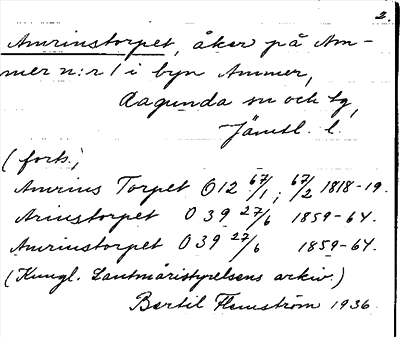 2.
Amrinstorpet, åker på Am-
mer n:r 1 i byn Ammer,
Ragunda sn och tg,
Jämtl. l.
(forts.)
Amrins Torpet O 12 67/1; 67/2 1818-19.
Arinstorpet O 39 27/6 1859-64.
Amrinstorpet O 39 27/6 1859-64.
(Kungl. Lantmäristyrelsens arkiv.)
Bertil Flemström 1936